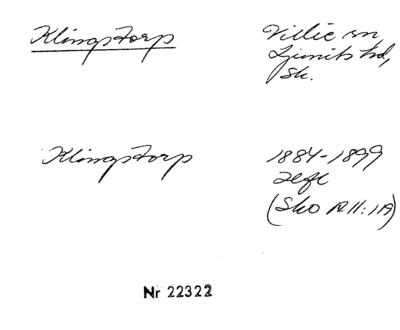 Klingstorp
Villie sn,
Ljunits hd,
Sk.
Klingstorp
1884-1899
(Sko R II:1A)
Nr 22322